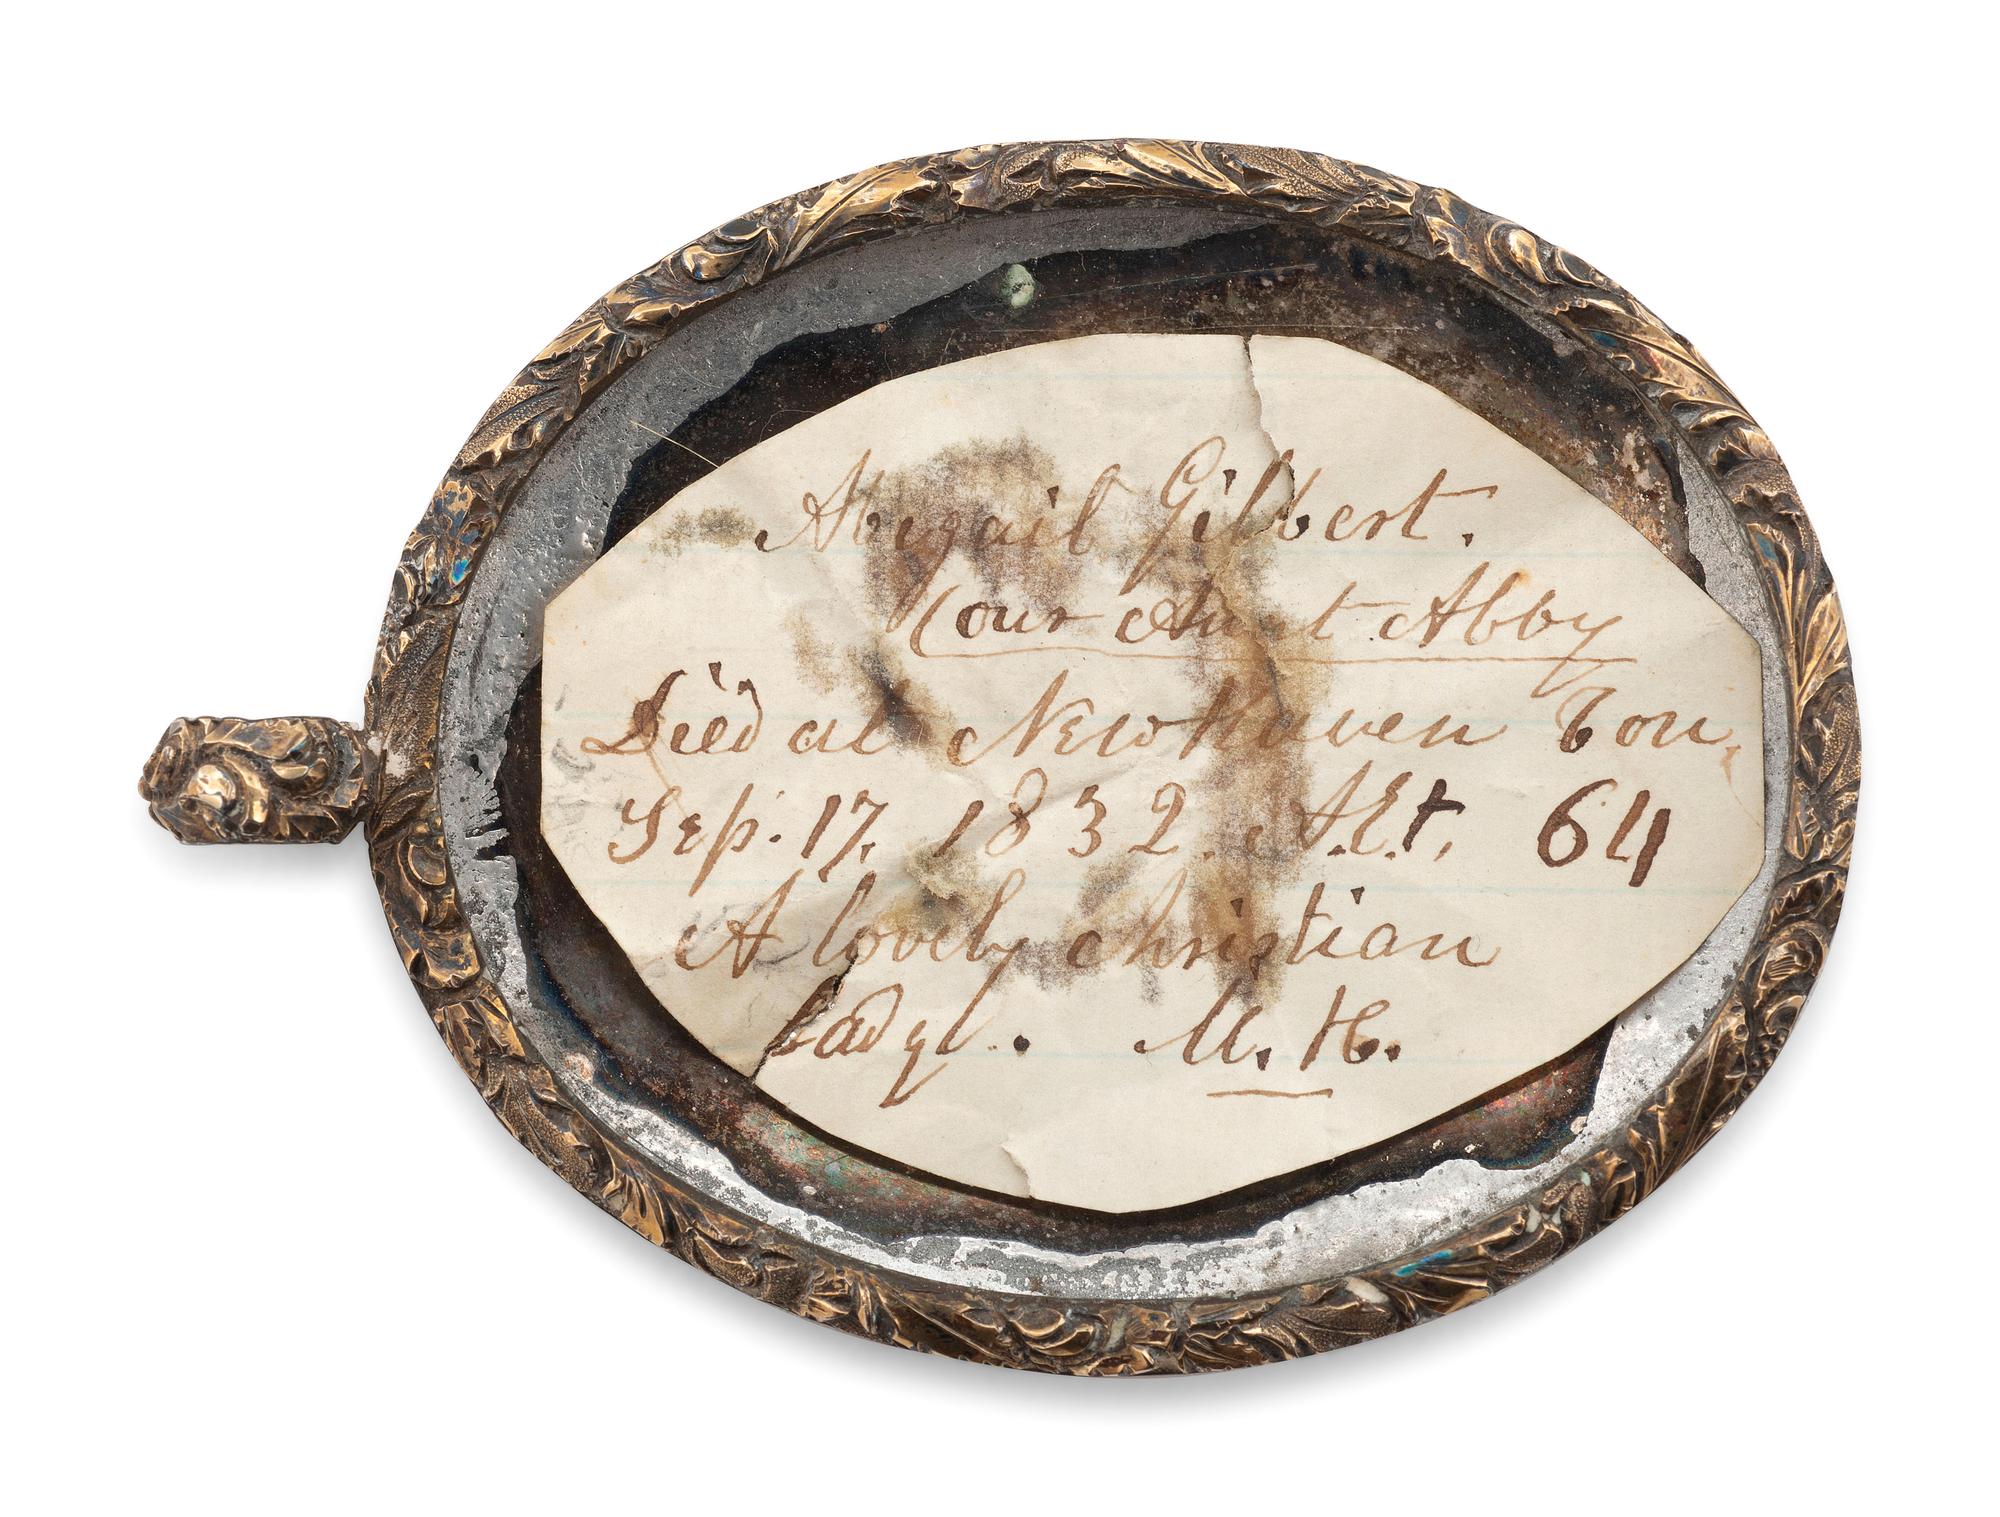 Abigail Gilbert.
(our Aunt Abby
Died at New Haven Con,
Sep. 17, 1832. AEt, 64
A lovely christian
lady. M. H.